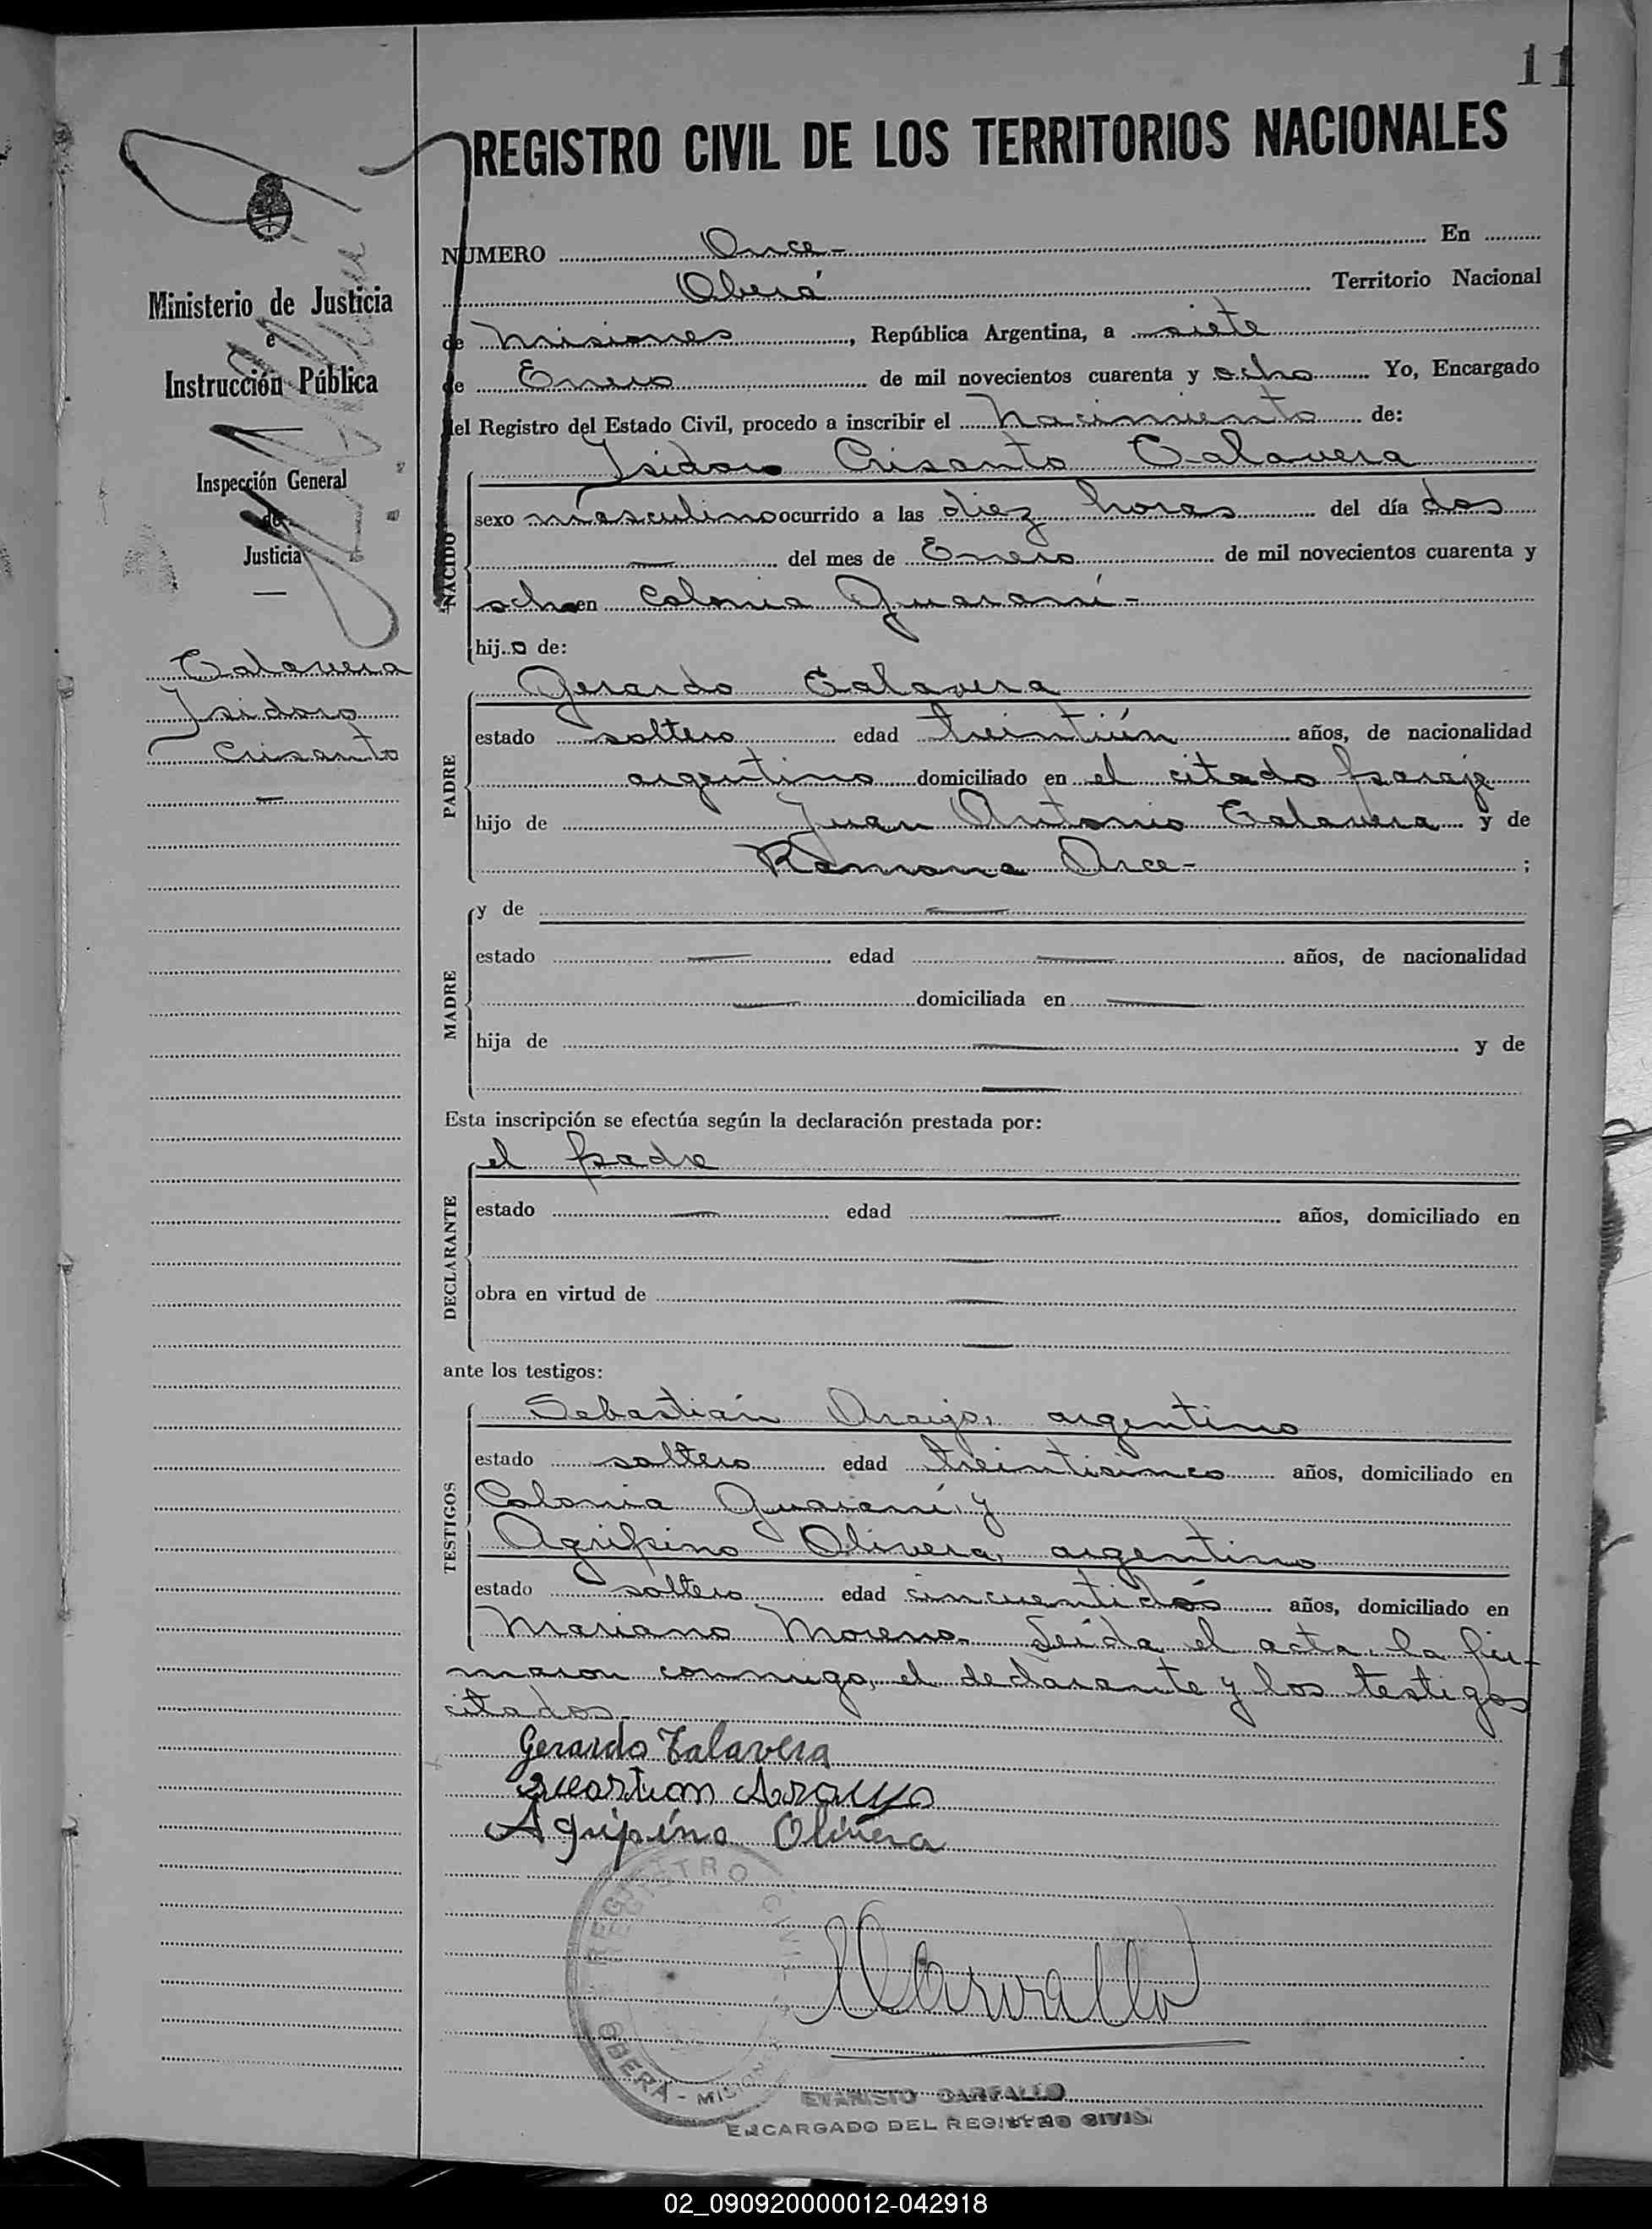 11
REGISTRO CIVIL DE LOS TERRITORIOS NACIONALES
Ministerio de Justicia
e
Instrucción Pública
Inspección General
de
Justicia
Talavera
Isidoro
Crisanto
NUMERO Once- En
Oberá Territorio Nacional
de Misiones, República Argentina, a siete
de Enero de mil novecientos cuarenta y ocho Yo, Encargado
del Registro del Estado Civil, procedo a inscribir el Nacimiento de:
NACIDO
Isidoro Crisanto Talavera
sexo masculino ocurrido a las diez horas del día dos
— del mes de Enero de mil novecientos cuarenta y
ocho en Colonia Guaraní-
hijo de:
PADRE
Gerardo Talavera
estado soltero edad treintiún años, de nacionalidad
argentino domiciliado en el citado paraje
hijo de Juan Antonio Talavera y de
Ramona Arce- ;
MADRE
y de —
estado — edad — años, de nacionalidad
— domiciliada en —
hija de — y de
—
Esta inscripción se efectúa según la declaración prestada por:
DECLARANTE
el padre
estado — edad — años, domiciliado en
—
obra en virtud de —
—
ante los testigos:
TESTIGOS
Sebastián Araujo, argentino
estado soltero edad treinticinco años, domiciliado en
Colonia Guaraní, y
Agripino Olivera, argentino
estado soltero edad cincuentidós años, domiciliado en
Mariano Moreno. Leída el acta, la fir-
maron conmigo, el declarante y los testigos
citados.
Gerardo Talavera
Araujo
Agripino Olivera
REGISTRO CIVIL
OBERÁ - MISIONES
ECarvallo
EVARISTO CARVALLO
ENCARGADO DEL REGISTRO CIVIL
02_090920000012-042918